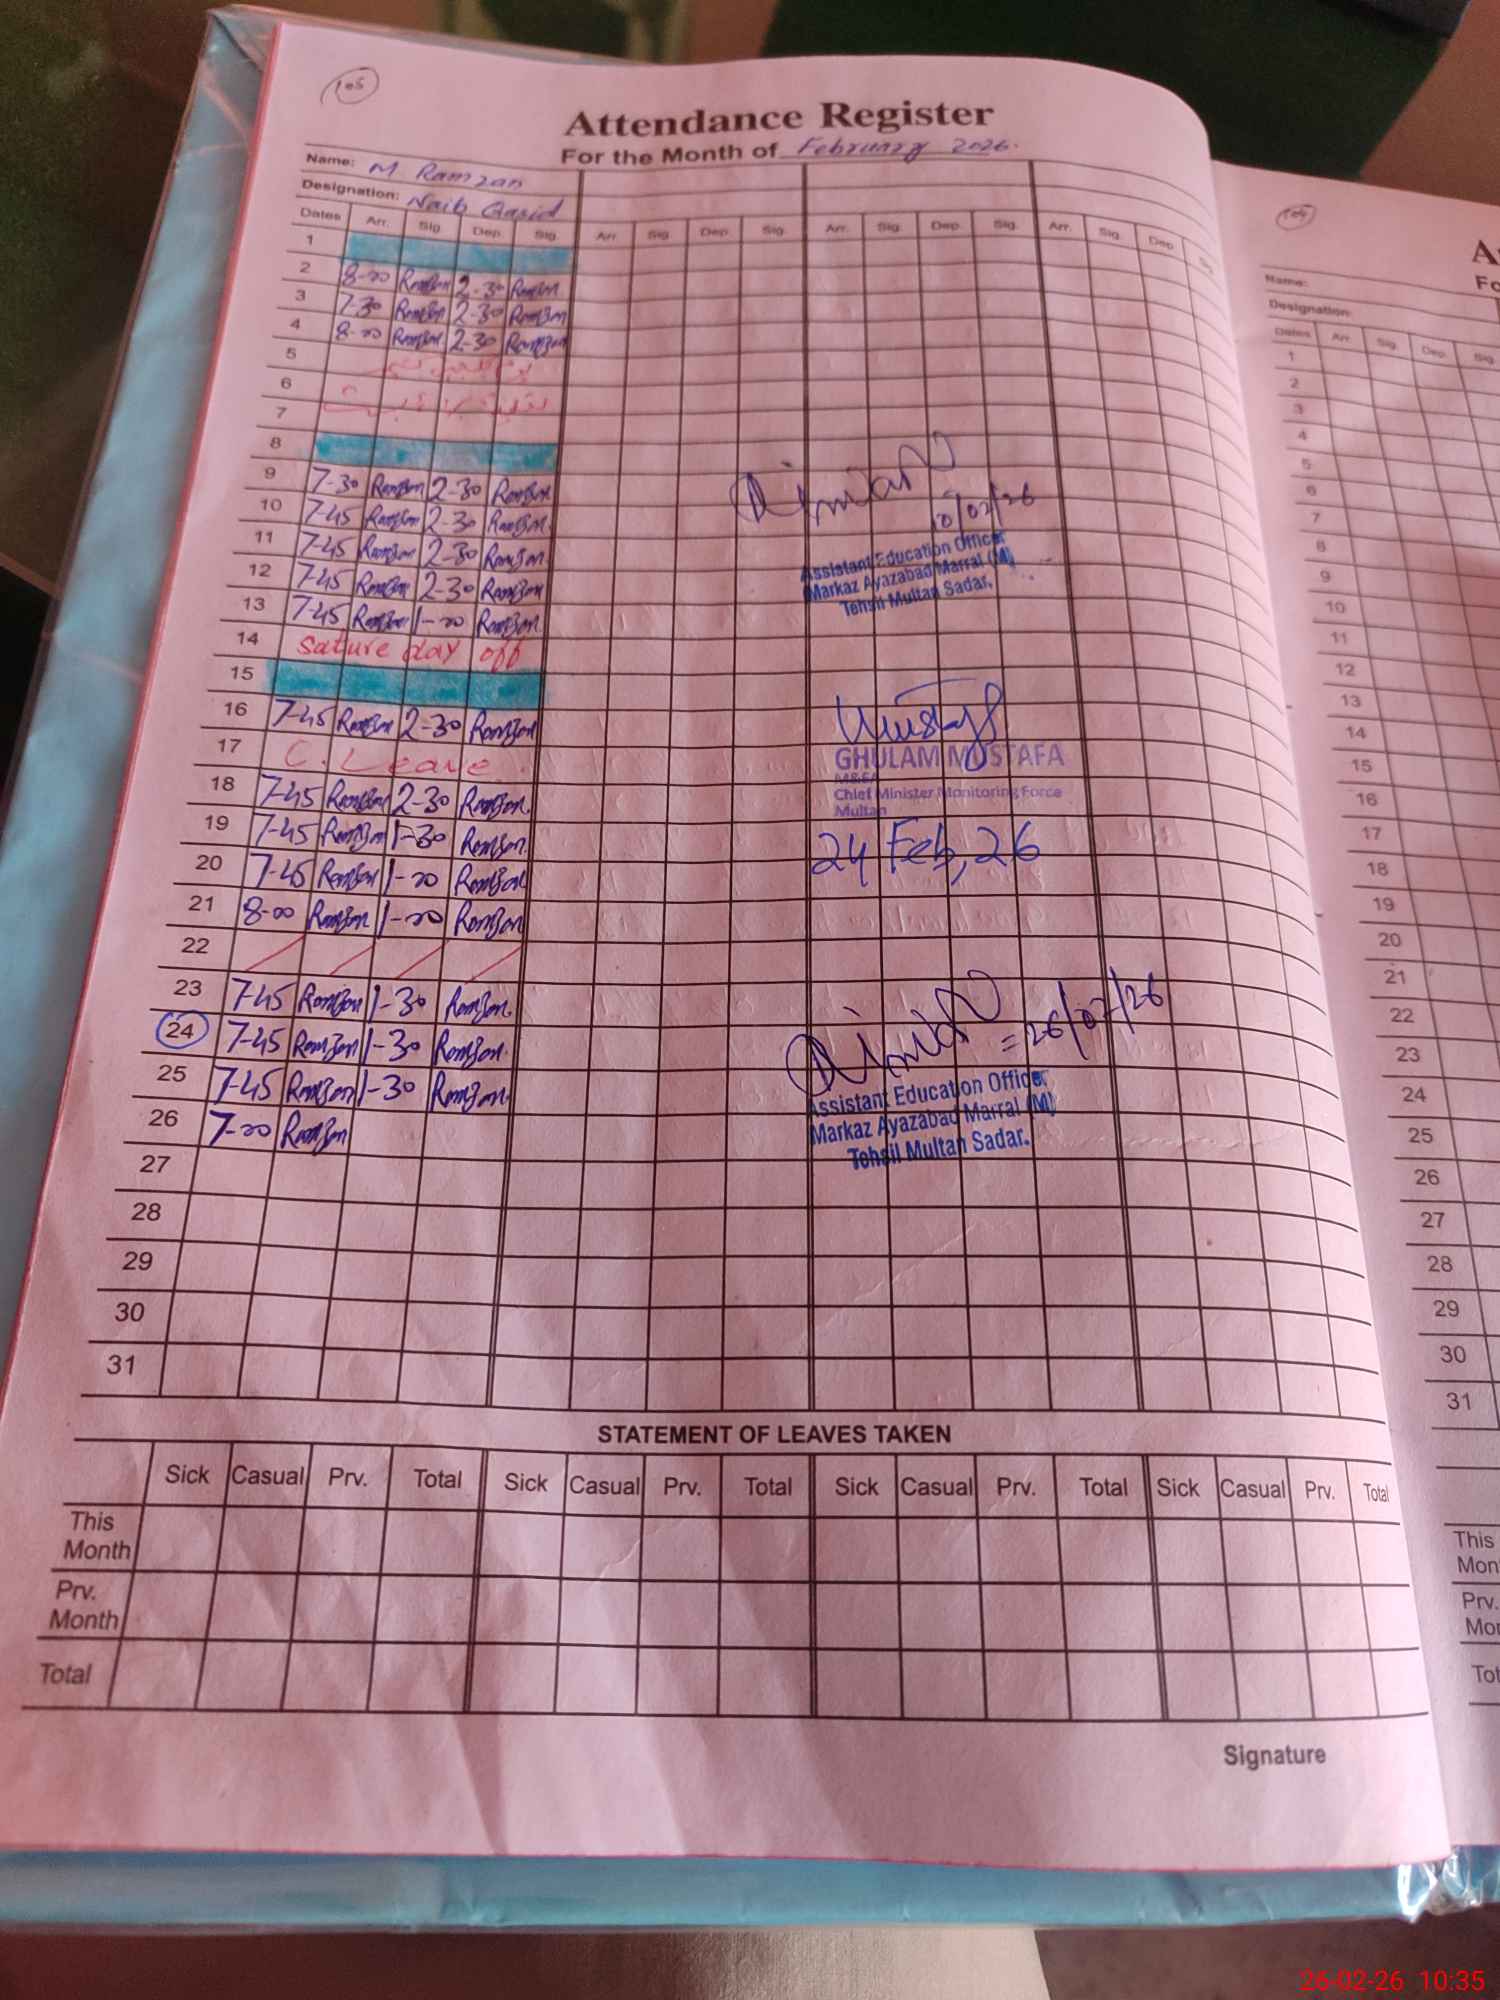 105
Attendance Register
For the Month of February 2026.
Name: M Ramzan
Designation: Naib Qasid
Dates Arr. Sig. Dep. Sig. Arr. Sig. Dep. Sig. Arr. Sig. Dep. Sig. Arr. Sig. Dep. Sig.
1
2 8-00 Ramzan 2-30 Ramzan
3 7-30 Ramzan 2-30 Ramzan
4 8-00 Ramzan 2-30 Ramzan
5
6
7
8
9 7-30 Ramzan 2-30 Ramzan
10 7-45 Ramzan 2-30 Ramzan
11 7-45 Ramzan 2-30 Ramzan
12 7-45 Ramzan 2-30 Ramzan
13 7-45 Ramzan 1-00 Ramzan
14 Sature day off
15
16 7-45 Ramzan 2-30 Ramzan
17 C. Leave
18 7-45 Ramzan 2-30 Ramzan
19 7-45 Ramzan 1-30 Ramzan
20 7-45 Ramzan 1-00 Ramzan
21 8-00 Ramzan 1-00 Ramzan
22
23 7-45 Ramzan 1-30 Ramzan
24 7-45 Ramzan 1-30 Ramzan
25 7-45 Ramzan 1-30 Ramzan
26 7-00 Ramzan
27
28
29
30
31
10/02/26
Assistant Education Officer
Markaz Ayazabad Marral (M)
Tehsil Multan Sadar.
Mustafa
GHULAM MUSTAFA
M&EA
Chief Minister Monitoring Force
Multan
24 Feb, 26
26/02/26
Assistant Education Officer
Markaz Ayazabad Marral (M)
Tehsil Multan Sadar.
STATEMENT OF LEAVES TAKEN
Sick Casual Prv. Total Sick Casual Prv. Total Sick Casual Prv. Total Sick Casual Prv. Total
This Month
Prv. Month
Total
Signature
Name:
Designation:
Dates Arr. Sig. Dep. Sig.
1
2
3
4
5
6
7
8
9
10
11
12
13
14
15
16
17
18
19
20
21
22
23
24
25
26
27
28
29
30
31
This
Prv.
26-02-26 10:35